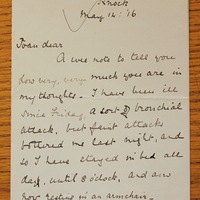 Knock
May 14: 16
Joan dear
A wee note to tell you
how very, very much you are in
my thoughts. I have been ill
since Friday, a sort of bronchial
attack, but faint attacks
bothered me last night, and
so I have stayed in bed all
day, until 8 o'clock, and am
now resting in an armchair.